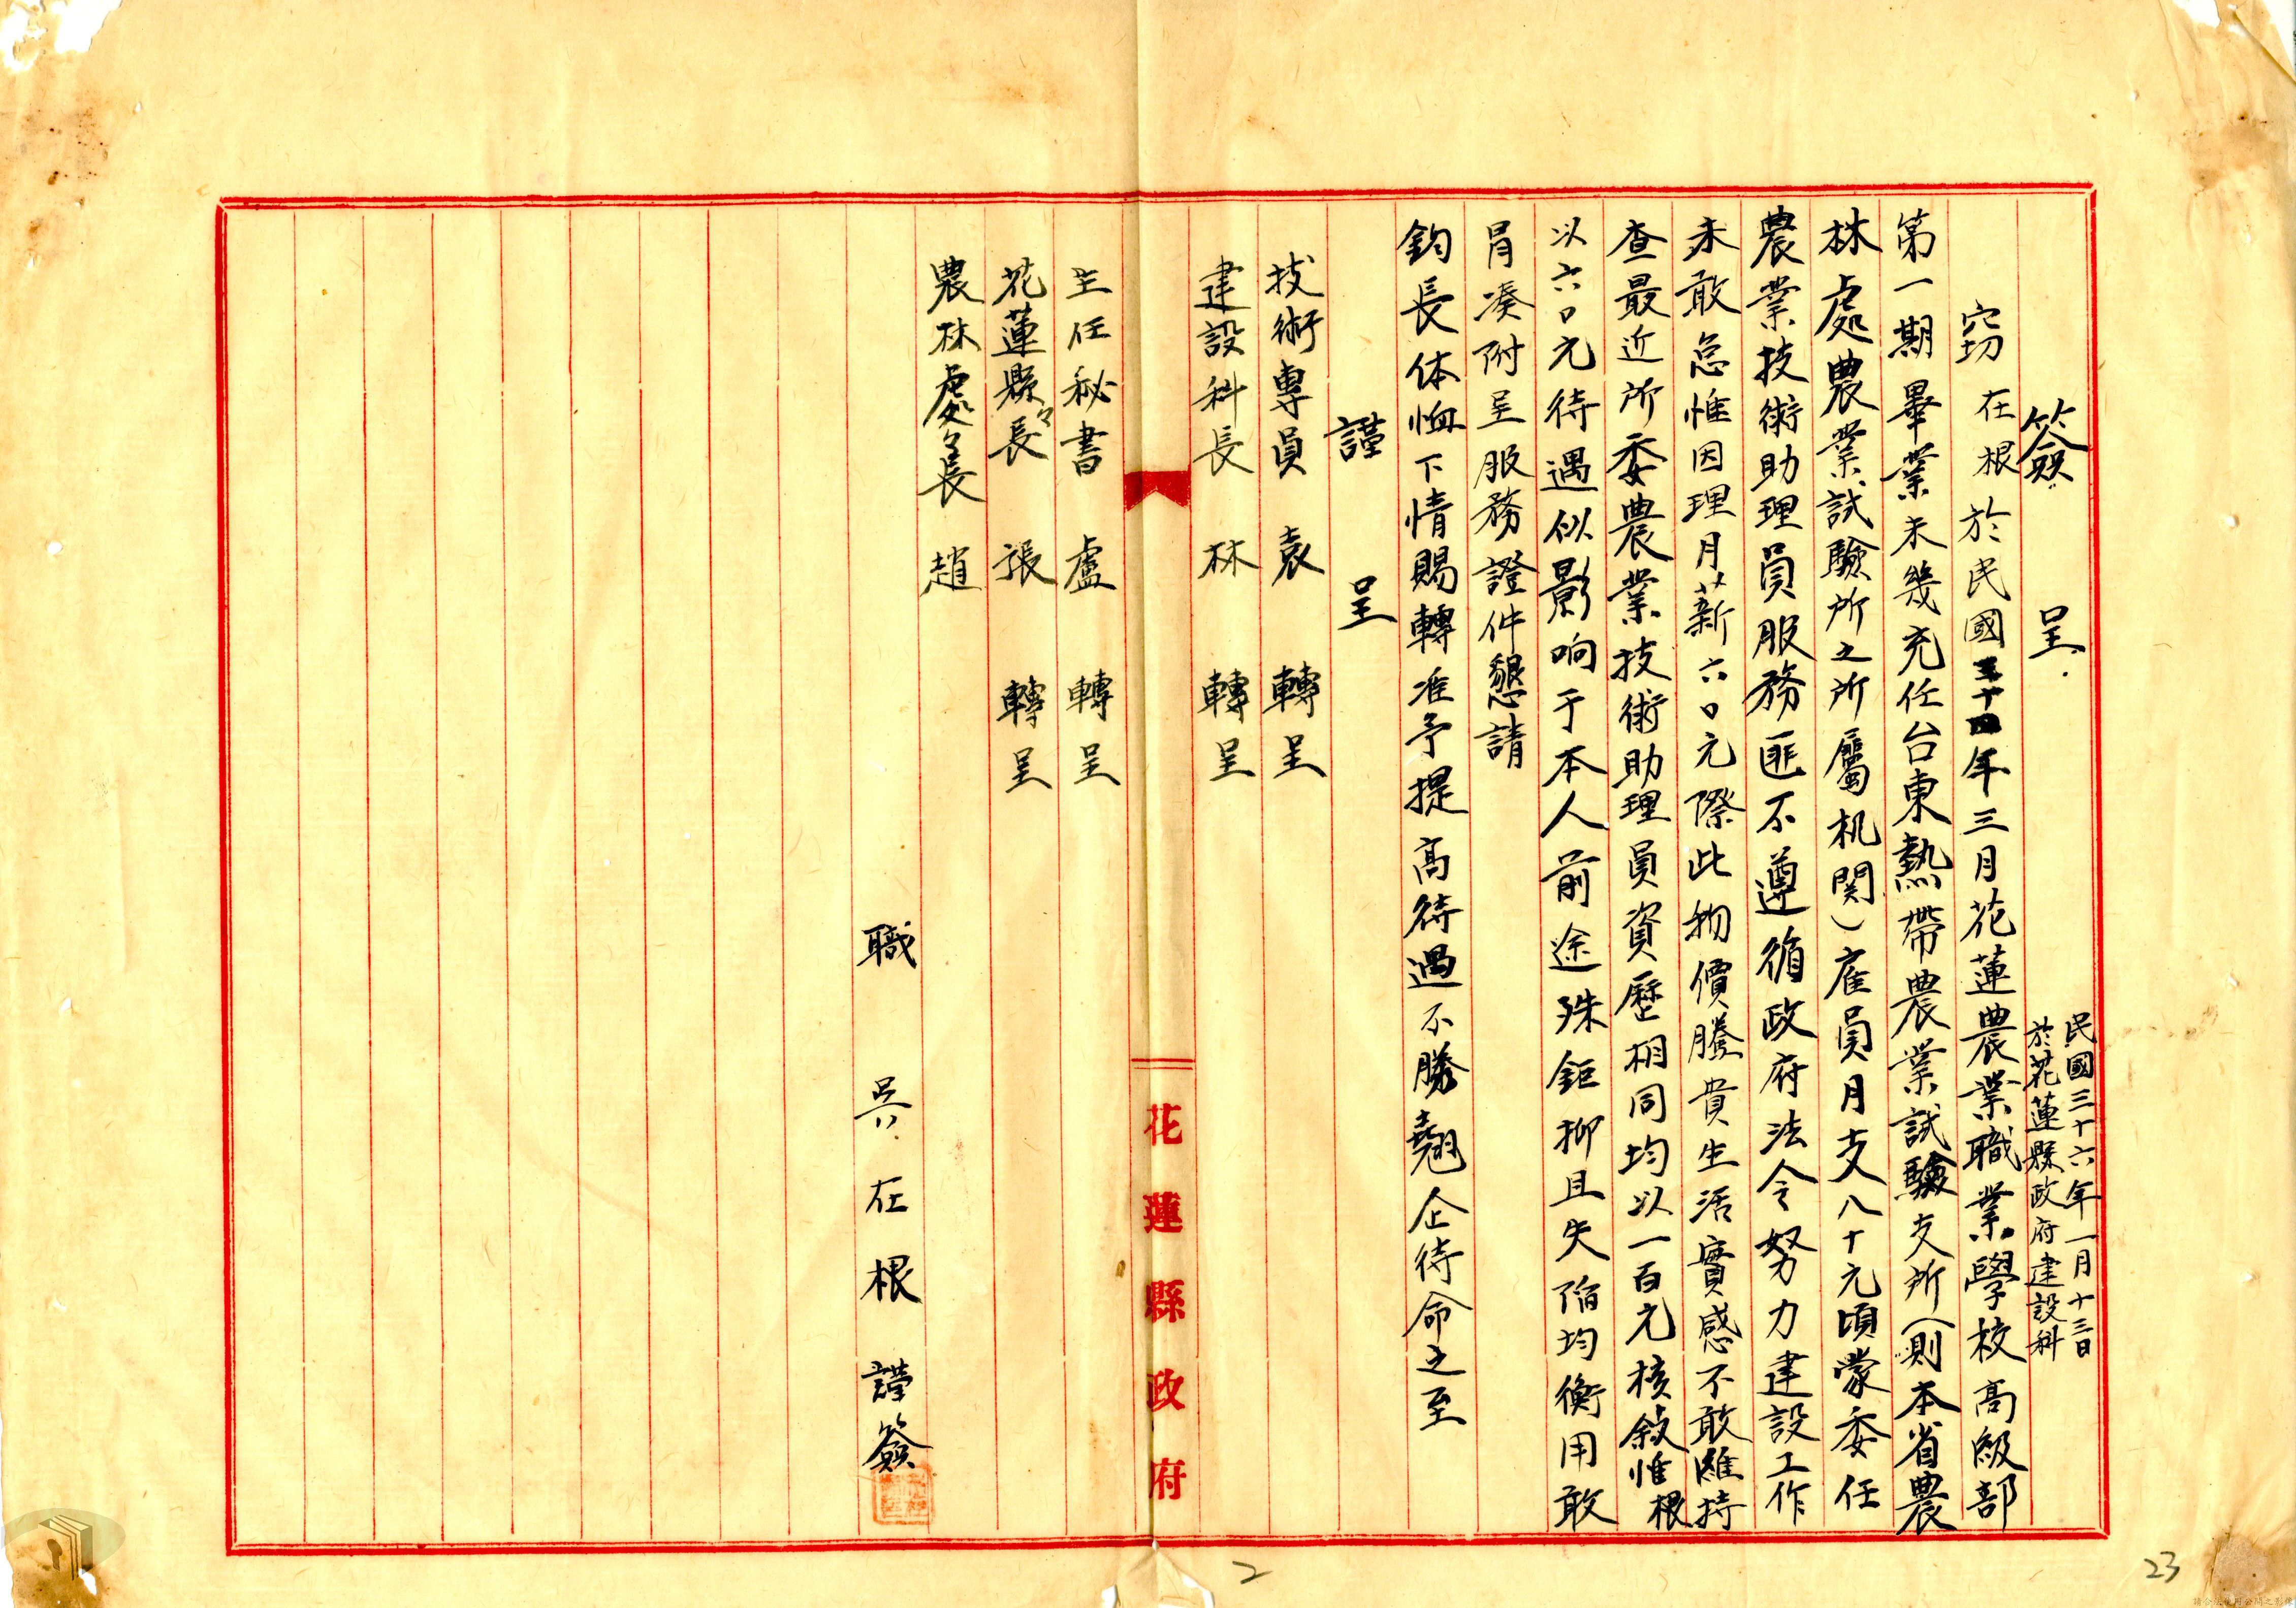 簽呈
民國三十六年一月十三日
於花蓮縣政府建設科
竊在根於民國三十四年三月花蓮農業職業學校高級部
第一期畢業未幾充任台東熱帶農業試驗支所(則本省農
林處農業試驗所之所屬机関)雇員月支八十元頃蒙委任
農業技術助理員服務匪不遵循政府法令努力建設工作
未敢怠惟因理月薪六〇元際此物價騰貴生活實感不敢維持
查最近所委農業技術助理員資歷相同均以一百元核敍惟根
以六〇元待遇似影响于本人前途殊鉅抑且失陷均衡用敢
肙凑附呈服務證件懇請
鈞長体恤下情賜轉准予提高待遇不勝翹企待命之至
謹呈
技術專員 袁 轉呈
建設科長 林 轉呈
主任秘書 盧 轉呈
花蓮縣々長 張 轉呈
農林處々長 趙
職 吳在根 謹簽
花蓮縣政府
2
23